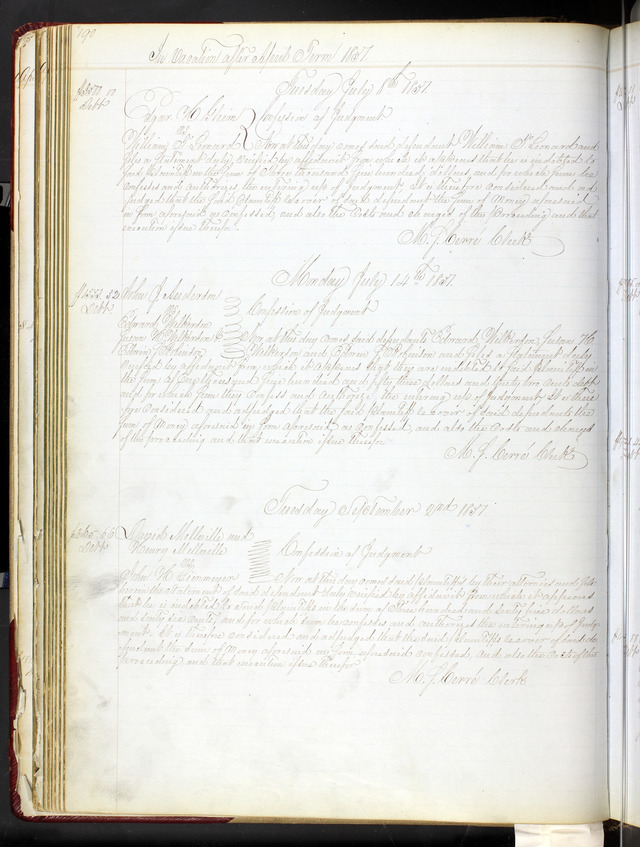 190
In Vacation after April Term 1857
Tuesday July 1857
Debt
Confession of Judgment
vs
William Leonard Now at this day comes said defendant William Leonard and
files a Statement duly verified by affidavit from which it appears that he is indebted to
said Plaintiff in the sum of three thousand five hundred dollars and for which sum he
confesses and authorizes the entering up of Judgment. It is therefore considered and ad
judged that the said Plaintiff recover of said defendant the sum of Money aforesaid
in form aforesaid as confessed, and also the Costs and charges of this proceeding and that
execution issue therefor.
M. J. Clerk
Monday July 14th 1857
John J Anderson
Debt
Confession of Judgment
vs
Edward Wilkerson
Wilkerson Now at this day comes said defendants Edward Wilkerson,
Edwin Wilkerson and Edwin and files a Statement duly
verified by affidavit from which it appears that they are indebted to said Plaintiff in
the sum of hundred and fifty three dollars and fifty two cents debt
and for which sum they confess and authorize the entering up of Judgment. It is there
fore considered and adjudged that the said Plaintiff recover of said defendants the
sum of Money aforesaid in form aforesaid as confessed, and also the Costs and charges
of this proceeding and that execution issue therefor
M. J. Clerk
Tuesday September 2nd 1857
David Mellville and
Debt Henry Mellville
Confession of Judgment
vs
John H Now at this day comes said Plaintiffs by their attorneys and file
herein the statement of said defendant duly verified by affidavit from which it appears
that he is indebted to said Plaintiffs in the sum of hundred and sixty five dollars
and sixty six cents and for which sum he confesses and authorizes the entering up of Judg
ment. It is therefore considered and adjudged that the said Plaintiffs recover of said de
fendant the sum of Money aforesaid in form aforesaid confessed, and also the Costs of this
proceeding and that execution issue therefor
M. J. Clerk